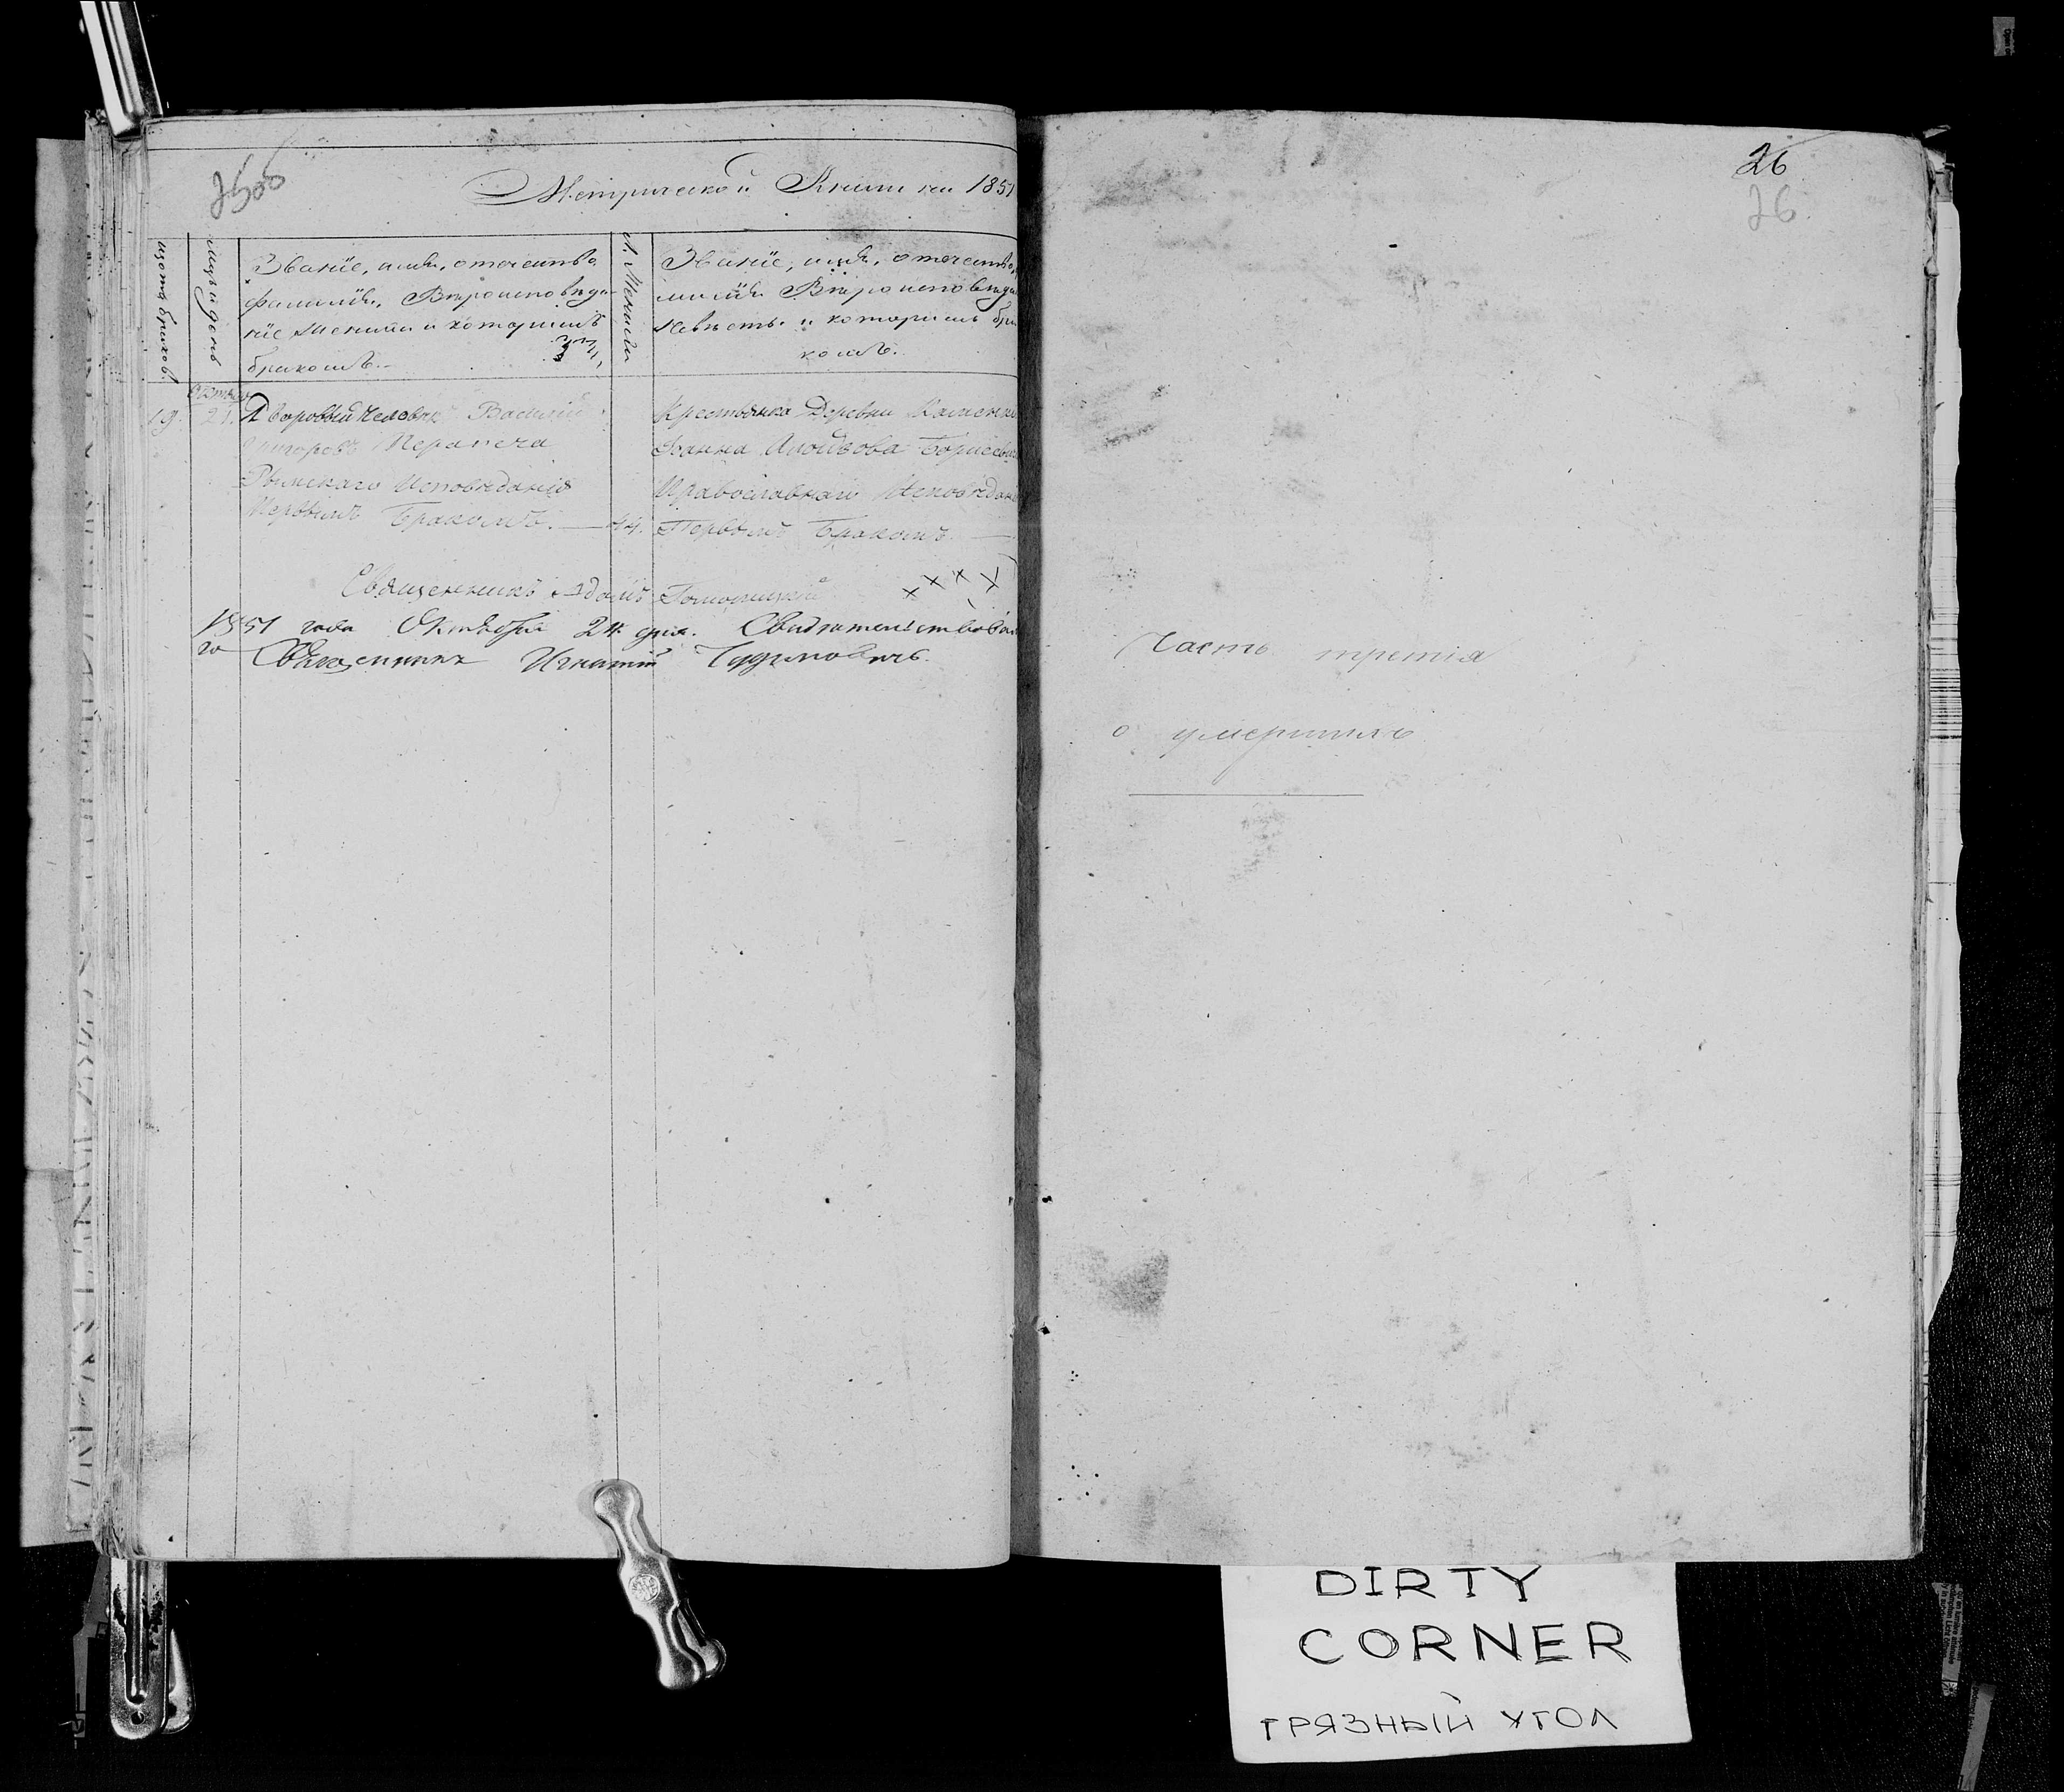 Метрической Книги на 1851
26
26
щетъ браковъ.
мцъ и день
Званіе, имя, отечество,
фамилія, Вѣроисповѣда-
ніе Жениха и которымъ
бракомъ.
Л. Жениха
Званіе, имя, отечество,
милія Вѣроисповѣда
Невѣсты и которымъ бра
комъ.
19. 21. Дворовый человѣкъ Василій
Григоровъ
Рымскаго Исповѣданія
Первымъ Бракомъ. — 44.
Крестьянка Деревни Каменки
Борисевич
Православнаго Исповѣдан
Первымъ Бракомъ. —
Священникъ Адамъ
1851 года Октября 24 дня. Свидѣтельствовал
Священникъ Игнатій
Часть третія
о умершихъ
DIRTY
CORNER
ГРЯЗНЫЙ УГОЛ